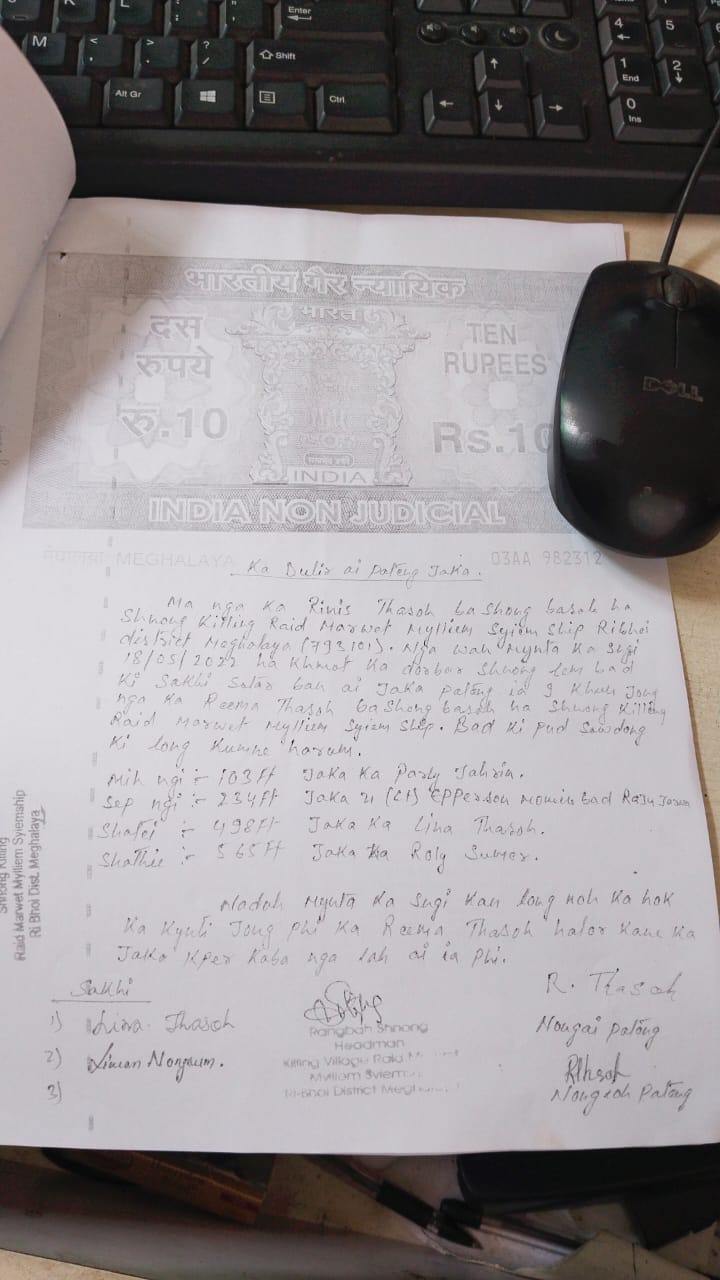 K
L
:
;
"
'
Enter
M
<
,
>
.
?
/
Shift
Alt Gr
Ctrl
4
5
1
End
2
0
Ins
DELL
भारतीय गैर न्यायिक
भारत
दस
रुपये
रु.10
TEN
RUPEES
Rs.10
सत्यमेव जयते
INDIA
INDIA NON JUDICIAL
मेघालय MEGHALAYA
03AA 982312
Ka Dulir ai pateng Jaka.
Ma nga Ka Rinis Thasoh ba shong basah ha
Shnong Killing Raid Marwet Mylliem Syiem Ship Ribhoi
district Meghalaya (793101). Nga wah Mynta Ka Sngi
18/05/2022 ha Khmat Ka dorbar Shnong lem bad
Ki Sakhi ban ai Jaka pateng ia I Khun Jong
nga Ka Reema Thasoh ba Shong basah ha Shnong Killing
Raid Marwet Mylliem Syiem Ship. Bad Ki pud Sawdong
Ki long Kumne harum.
Mih ngi :- 103 Ft Jaka Ka Party Jahrin.
Sep ngi :- 234 Ft Jaka U (Lt) Epperson Momin bad Raju
Shatei :- 498 Ft Jaka Ka Lina Thasoh.
Shathie :- 565 Ft Jaka Ka Roly Sumer.
Naduh Mynta Ka Sngi Kan long noh Ka hok
Ka Kynti Jong phi Ka Reema Thasoh halor Kane Ka
Jaka Kper Kaba nga lah ai ia Phi.
Sakhi
1) Lina Thasoh
2) Nongrum.
3)
Rangbah Shnong
Headman
Killing Village Raid
Mylliem Syiem
Ri-Bhoi District
R. Thasoh
Nongai pateng
Nongioh Pateng
Shnong Killing
Raid Marwet Mylliem Syiemship
Ri Bhoi Dist. Meghalaya